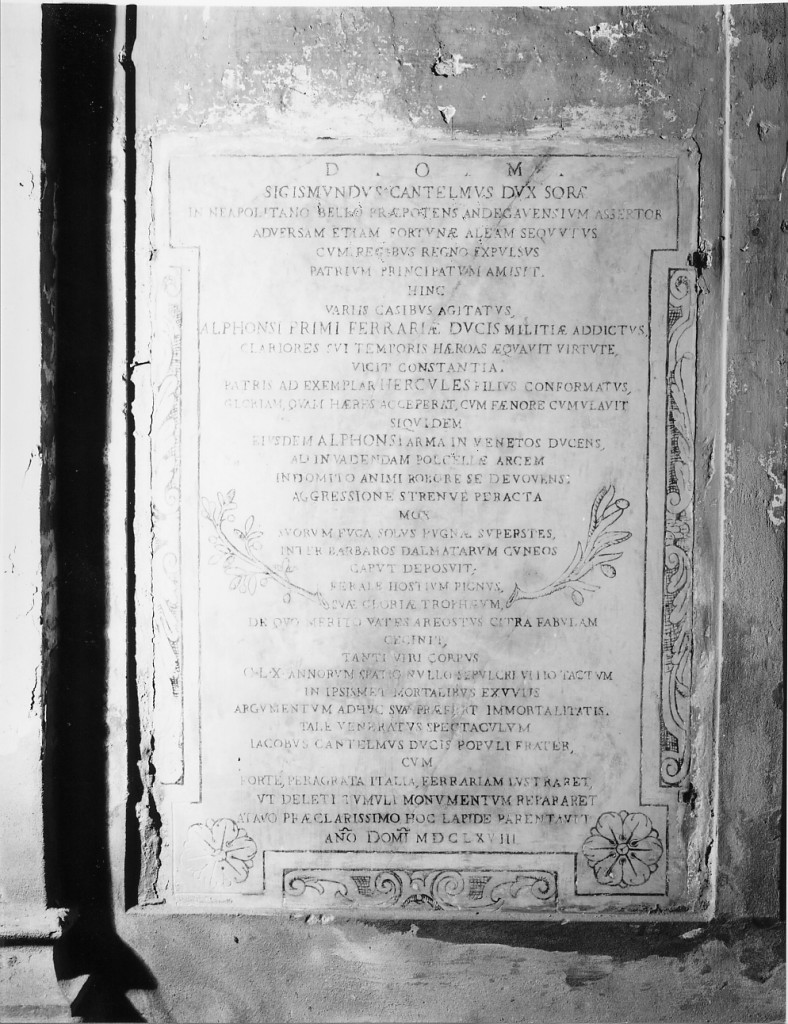 D . O . M .
SIGISMVNDVS CANTELMVS DVX SORÆ
IN NEAPOLITANO BELLO PRÆPOTENS ANDEGAVENSIVM ASSERTOR
ADVERSAM ETIAM FORTVNÆ ALEAM SEQVVTVS
CVM REGIBVS REGNO EXPVLSVS
PATRIVM PRINCIPATVM AMISIT.
HINC
VARIIS CASIBVS AGITATVS,
ALPHONSI PRIMI FERRARIÆ DVCIS MILITIÆ ADDICTVS,
CLARIORES SVI TEMPORIS HÆROAS ÆQVAVIT VIRTVTE,
VICIT CONSTANTIA.
PATRIS AD EXEMPLAR HERCVLES FILIVS CONFORMATVS,
GLORIAM, QVAM HÆRES ACCEPERAT, CVM FÆNORE CVMVLAVIT
SIQVIDEM
EIVSDEM ALPHONSI ARMA IN VENETOS DVCENS,
AD INVADENDAM POLCELLÆ ARCEM
INDOMITO ANIMI ROBORE SE DEVOVENS;
AGGRESSIONE STRENVE PERACTA
MOX
SVORVM FVGA SOLVS PVGNÆ SVPERSTES,
INTER BARBAROS DALMATARVM CVNEOS
CAPVT DEPOSVIT,
FERALE HOSTIVM PIGNVS,
SVÆ GLORIÆ TROPHEVM,
DE QVO MERITO VATES AREOSTVS CITRA FABVLAM
CECINIT,
TANTI VIRI CORPVS
C.L.X ANNORVM SPATIO NVLLO SEPVLCRI VITIO TACTVM
IN IPSISMET MORTALIBVS EXVVIIS
ARGVMENTVM ADHVC SVÆ PRÆFERT IMMORTALITATIS.
TALE VENERATVS SPECTACVLVM
IACOBVS CANTELMVS DVCIS POPVLI FRATER,
CVM
FORTE, PERAGRATA ITALIA, FERRARIAM LVSTRARET,
VT DELETI TVMVLI MONVMENTVM REPARARET
ATAVO PRÆCLARISSIMO HOC LAPIDE PARENTAVIT
AÑO DOMÑI MDCLXVIII